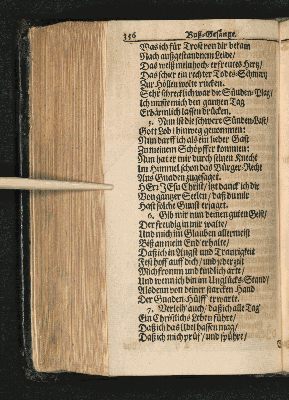 356 Buß-Gesänge.
Was ich für Trost von dir bekam
Nach außgestandnem Leide/
Das weiß mein hoch-erfreutes Hertz/
Das schier ein rechter Todes-Schmertz
Zur Höllen wolte rücken.
Sehr schrecklich war die Sünden-Plag/
Ich muste mich den gantzen Tag
Erbärmlich lassen drücken.
5. Nun ist die schwere Sünden-Last/
Gott Lob! hinweg genommen:
Nun darff ich als ein lieber Gast
Zu meinem Schöpffer kommen:
Nun hat er mir durch seinen Knecht
Im Himmel schon das Bürger-Recht
Aus Gnaden zugesaget.
HErr JEsu Christ/ itzt danck ich dir
Von gantzer Seelen/ daß du mir
Hast solche Gunst erzaget.
6. Gib mir nun deinen guten Geist/
Der freudig in mir walte/
Und mich im Glauben allermeist
Biß an mein End erhalte/
Daß ich in Angst und Traurigkeit
Fest hoff auf dich/ und jederzeit
Mich fromm und kindlich arte/
Und wenn ich bin im Unglücks-Stand/
Alsdenn von deiner starcken Hand
Der Gnaden-Hülff erwarte.
7. Verleih auch/ daß ich alle Tag
Ein Christlichs Leben führe/
Daß ich das Übel hassen mag/
Daß ich mich prüf/ und spühre/